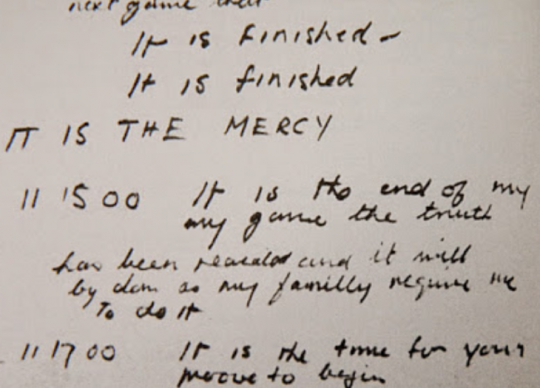 next game that
It is finished –
It is finished
IT IS THE MERCY
11 15 00 It is the end of my
my game the truth
has been revealed and it will
by don as my familly require me
To do it
11 17 00 It is the time for your
moove to begin